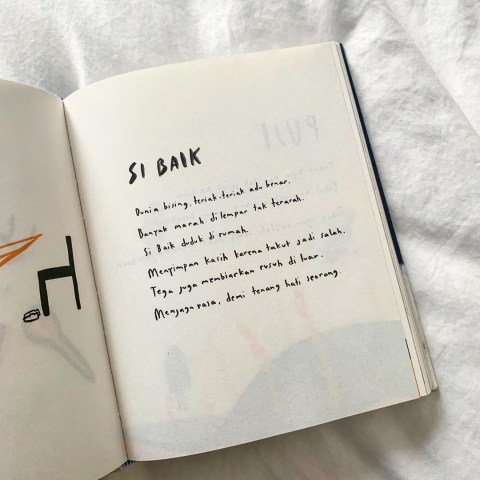 SI BAIK
Dunia bising, teriak-teriak adu benar.
Banyak marah di lempar tak terarah.
Si Baik duduk di rumah.
Menyimpan kasih karena takut jadi salah.
Tega juga membiarkan rusuh di luar.
Menjaga rasa, demi tenang hati seorang.